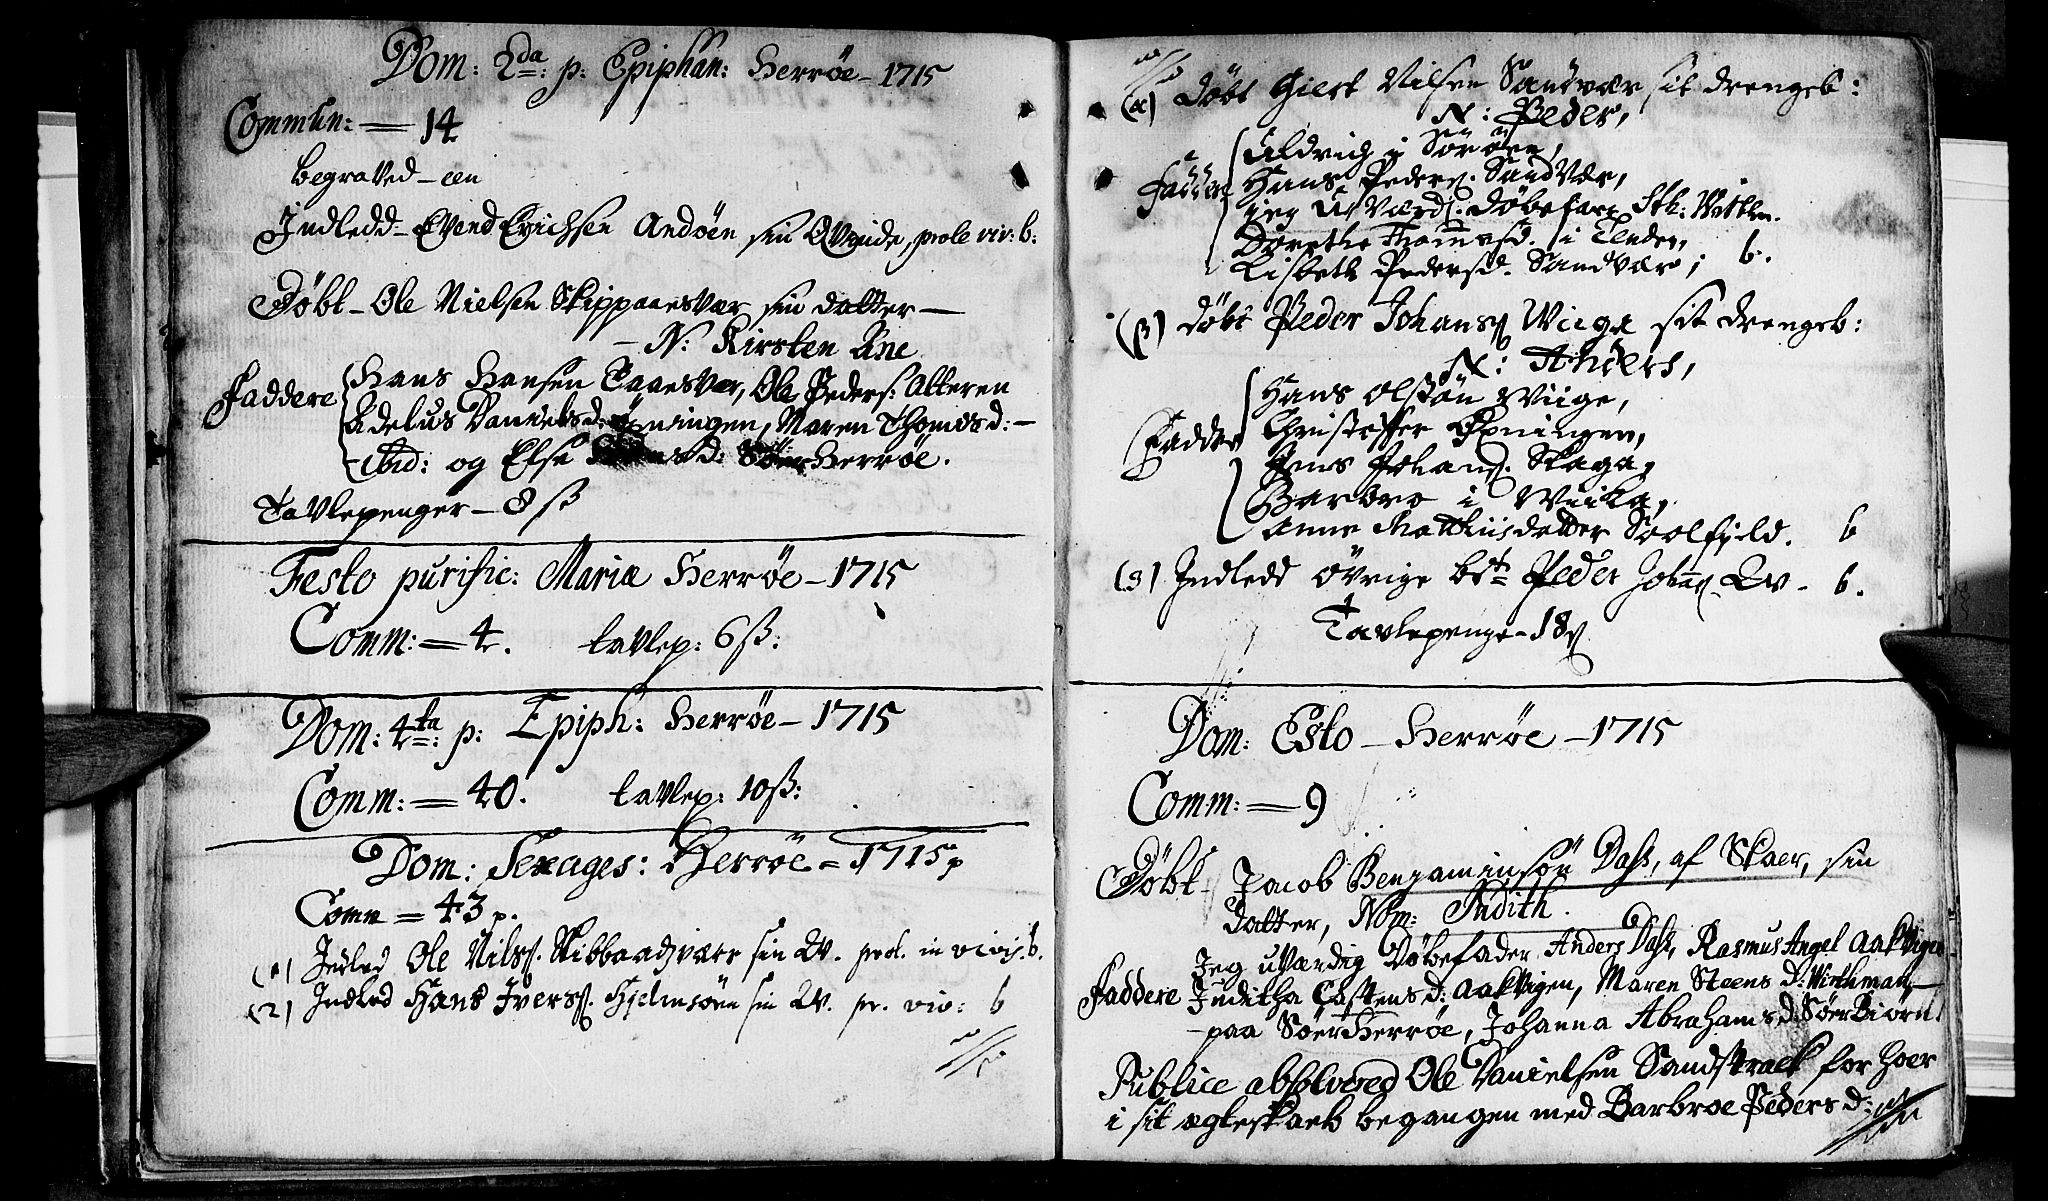 Dom: 2da: p: Epiphan: Herrøe – 1715
Commun: = 14
begraved – een
Indledd – Evend Erichsen Andøen sin Qvinde, prole viv: b:
Døbt – Ole Nielsen Skippaaesvær sin datter –
– N: Kirsten Ane
Faddere
Hans Hansen Taaesvær, Ole Peders: Alteren
Adelus Danielsd: Øningen, Maren Thomasd: –
– ibid: og Else d: SøerHerrøe.
Tavlepenger – 8 ß
Festo purific: Mariæ Herrøe – 1715
Comm: = 4. tavlep: 6 ß:
Dom: 4ta: p: Epiph: Herrøe – 1715
Comm: = 40. tavlep: 10 ß:
Dom: Sexages: Herrøe = 1715
Comm = 43 p.
(1) Indled Ole Nilss. Skibbaadsvær sin Qv. prol. in vivis. b.
(2) Indled Hans Iverss. Hjelmsøen sin Qv. pr. viv: b
(α) døbt Giert Nilsen Sandvær sit drengeb:
N: Peder,
Fadder
Uldrich i Sørøen,
Hans Peders. Sandvær,
jeg Uværd: døbefar,
Dorethe Thomasd. i b.
Lisbeth Pedersd. Sandvær;
(β) døbt Peder Johans Wiige sit drengeb:
N: Anders,
Fadder
Hans Olssøn Wiige,
Christoffer Øxningen,
Jens Johans. Skaga,
Barbro i Wiika,
Anne Matthiisdatter Soolfjeld. b
(3) Indledd øvrige bte Peder Johns Qv – b.
Tavlepenge – 18 ß
Dom: Esto – Herrøe – 1715
Comm: = 9
Døbt – Jacob Benjaminsøn Dass, af Skaer, sin
datter, Nom: Judith.
Faddere
Jeg uværdig Døbefader Anders Dass, Rasmus Angel Aakvigen
Juditha Castens d: Aakvigen, Maren Steens d: Wirthman,
– paa SøerHerrøe, Johanna Abrahams d: SøerBiørn.
Publice absolvered Ole Danielsen Sandstraek for hoer
i sit ægteskaeb begangen med Barbroe Peders d: